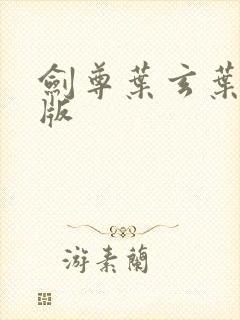 劍尊葉玄葉
版
游素蘭